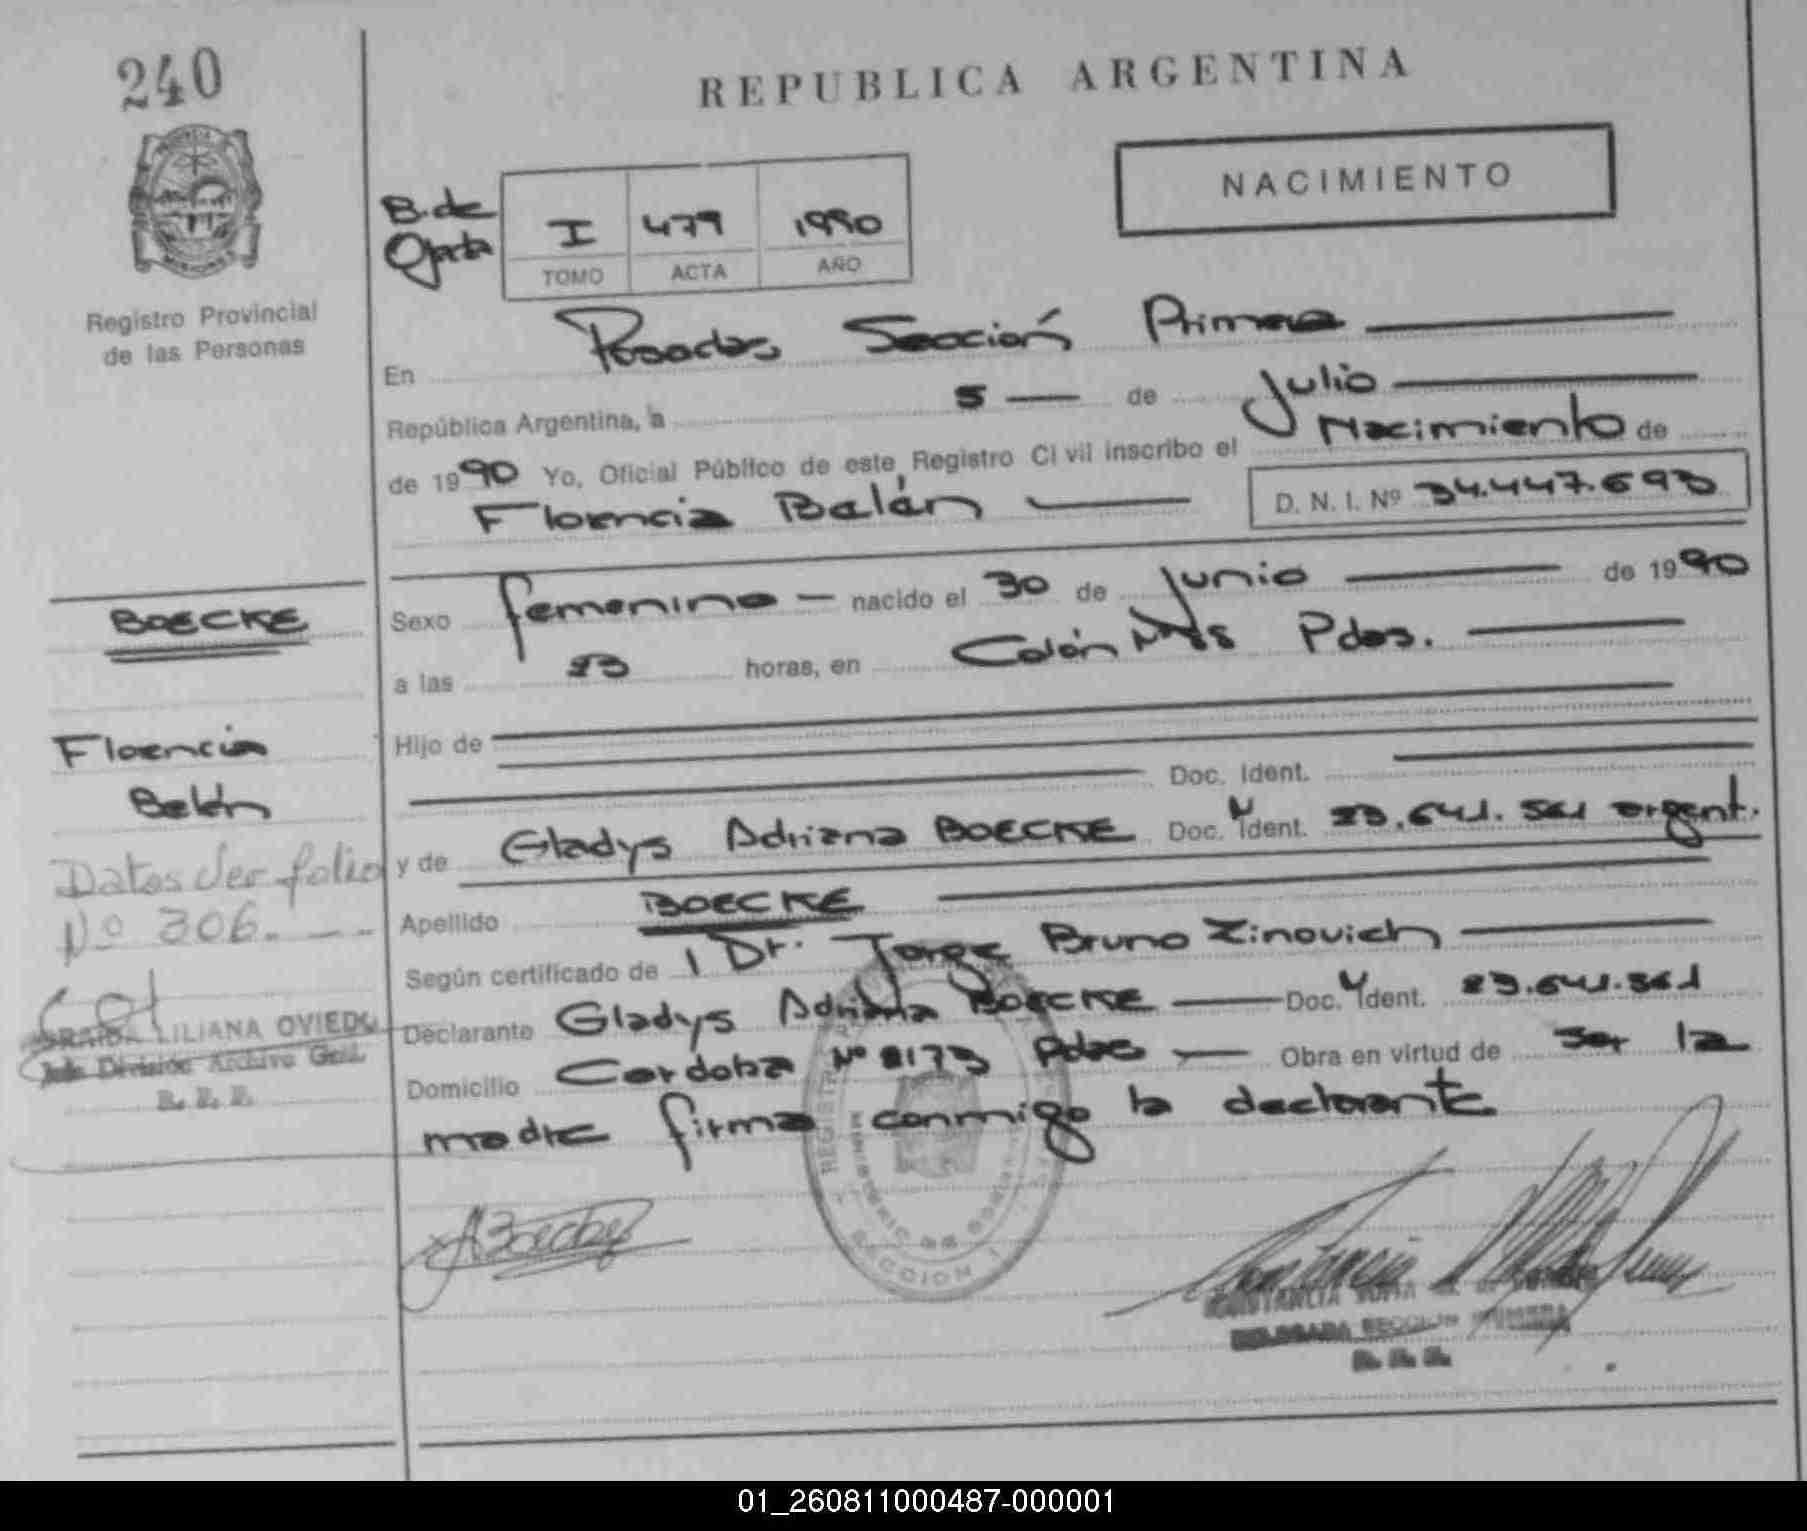 240
REPUBLICA ARGENTINA
NACIMIENTO
B. de
I 479 1990
TOMO ACTA AÑO
Registro Provincial
de las Personas
En Posadas, Sección Primera
República Argentina, a 5 de Julio
de 1990 Yo, Oficial Público de este Registro Civil inscribo el Nacimiento de
Florencia Belén
D. N. I. Nº 34.447.693
BOECKE
Sexo femenino nacido el 30 de Junio de 1990
a las 23 horas, en Colón Pdas.
Florencia
Belén
Hijo de
Doc. Ident.
y de Gladys Adriana BOECKE Doc. Ident. 23.641.361 argent.
Datos Ver folio
Nº 306.
Apellido BOECKE
Según certificado de 1 Dr. Jorge Bruno Zinovich
Declarante Gladys Adriana BOECKE Doc. Ident. 23.641.361
LILIANA OVIEDO
División Archivo Gral.
Domicilio Cordoba Nº 2173 Pdas Obra en virtud de ser la
madre firma conmigo la declarante
SECCION 1
DELEGADA SECCION PRIMERA
01_260811000487-000001